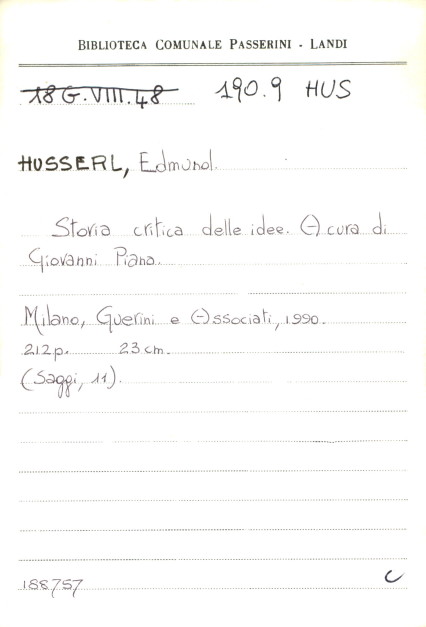 BIBLIOTECA COMUNALE PASSERINI - LANDI
18 G.VIII.48 190.9 HUS
HUSSERL, Edmund.
Storia critica delle idee. A cura di
Giovanni Piana.
Milano, Guerini e Associati, 1990.
212p. 23 cm.
(Saggi, 11).
188757 C